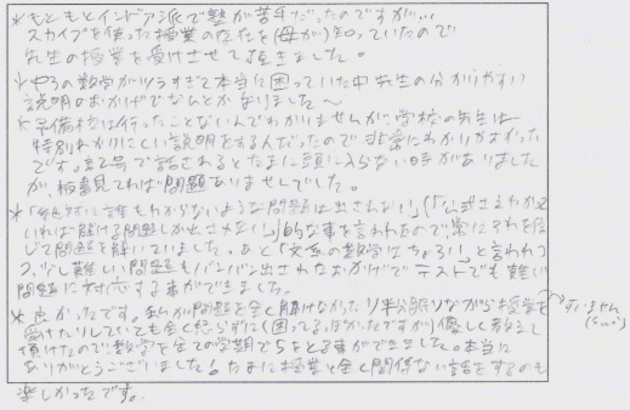 *もともとインドア派で塾が苦手だったのですが…
スカイプを使った授業の存在を(母が)知っていたので
先生の授業を受けさせて頂きました。
*中3の数学がツラすぎて本当に困っていた中先生の分かりやすい
説明のおかげでなんとかなりました〜
*予備校は行ったことないんでわかりませんが、学校の先生は
特別わかりにくい説明をする人だったので非常にわかりやすかった
です。記号で話されるとたまに頭に入らない時がありました
が、板書見てれば問題ありませんでした。
*「絶対に誰もわからないような問題は出されない!」(「公式さえわかって
いれば解ける問題しか出させない!」)的な事を言われたので常にそれを信
じて問題を解いていました。あと「文系の数学はちょろい」と言われつ
つ、少し難しい問題もバンバン出されたおかげでテストでも難しい
問題に対応する事ができました。
*良かったです。私が問題を全く解けなかったり半分眠りながら授業を→すいません
受けたりしていても全く怒らずに(困ってるっぽかったですが)優しく教えて
頂けたので、数学を全ての学期で5をとる事ができました。本当に
ありがとうございました!たまに授業と全く関係ない話をするのも
楽しかったです。